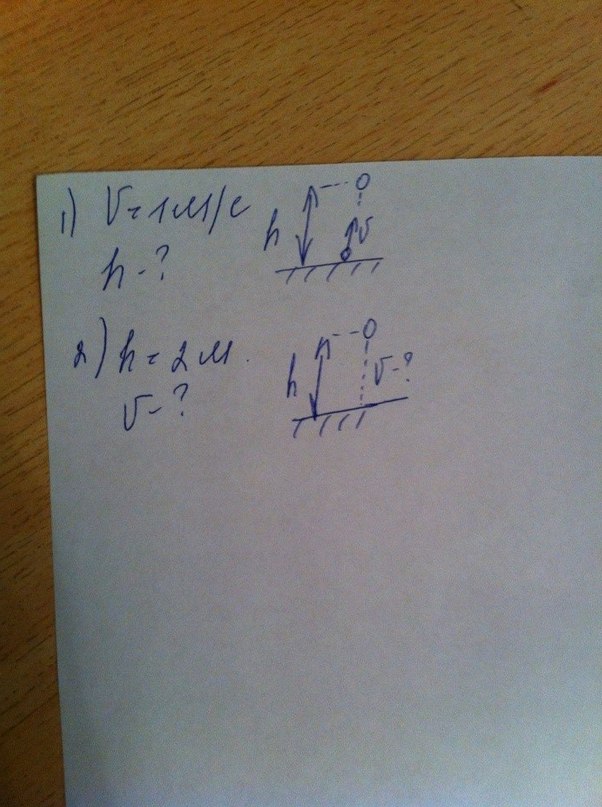 1) V = 1 м/с
h - ?
h
v
2) h = 2 м.
V - ?
h
V - ?